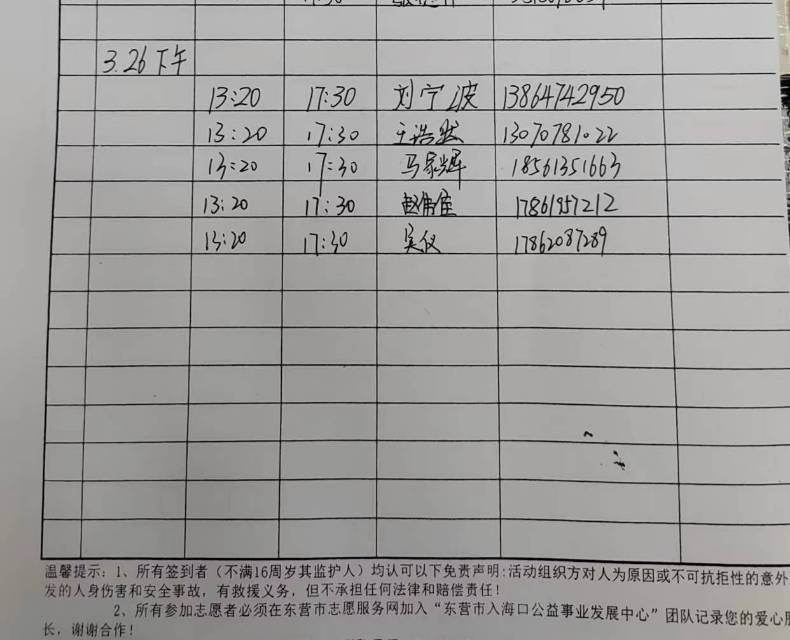 3.26下午
13:20 17:30 刘宁波 13864742950
13:20 17:30 王浩然 13070781022
13:20 17:30 马家辉 18561351663
13:20 17:30 17861957212
13:20 17:30 吴仪 17862087289
温馨提示：1、所有签到者（不满16周岁其监护人）均认可以下免责声明：活动组织方对人为原因或不可抗拒性的意外
发的人身伤害和安全事故，有救援义务，但不承担任何法律和赔偿责任！
2、所有参加志愿者必须在东营市志愿服务网加入“东营市入海口公益事业发展中心”团队记录您的爱心服
长，谢谢合作！